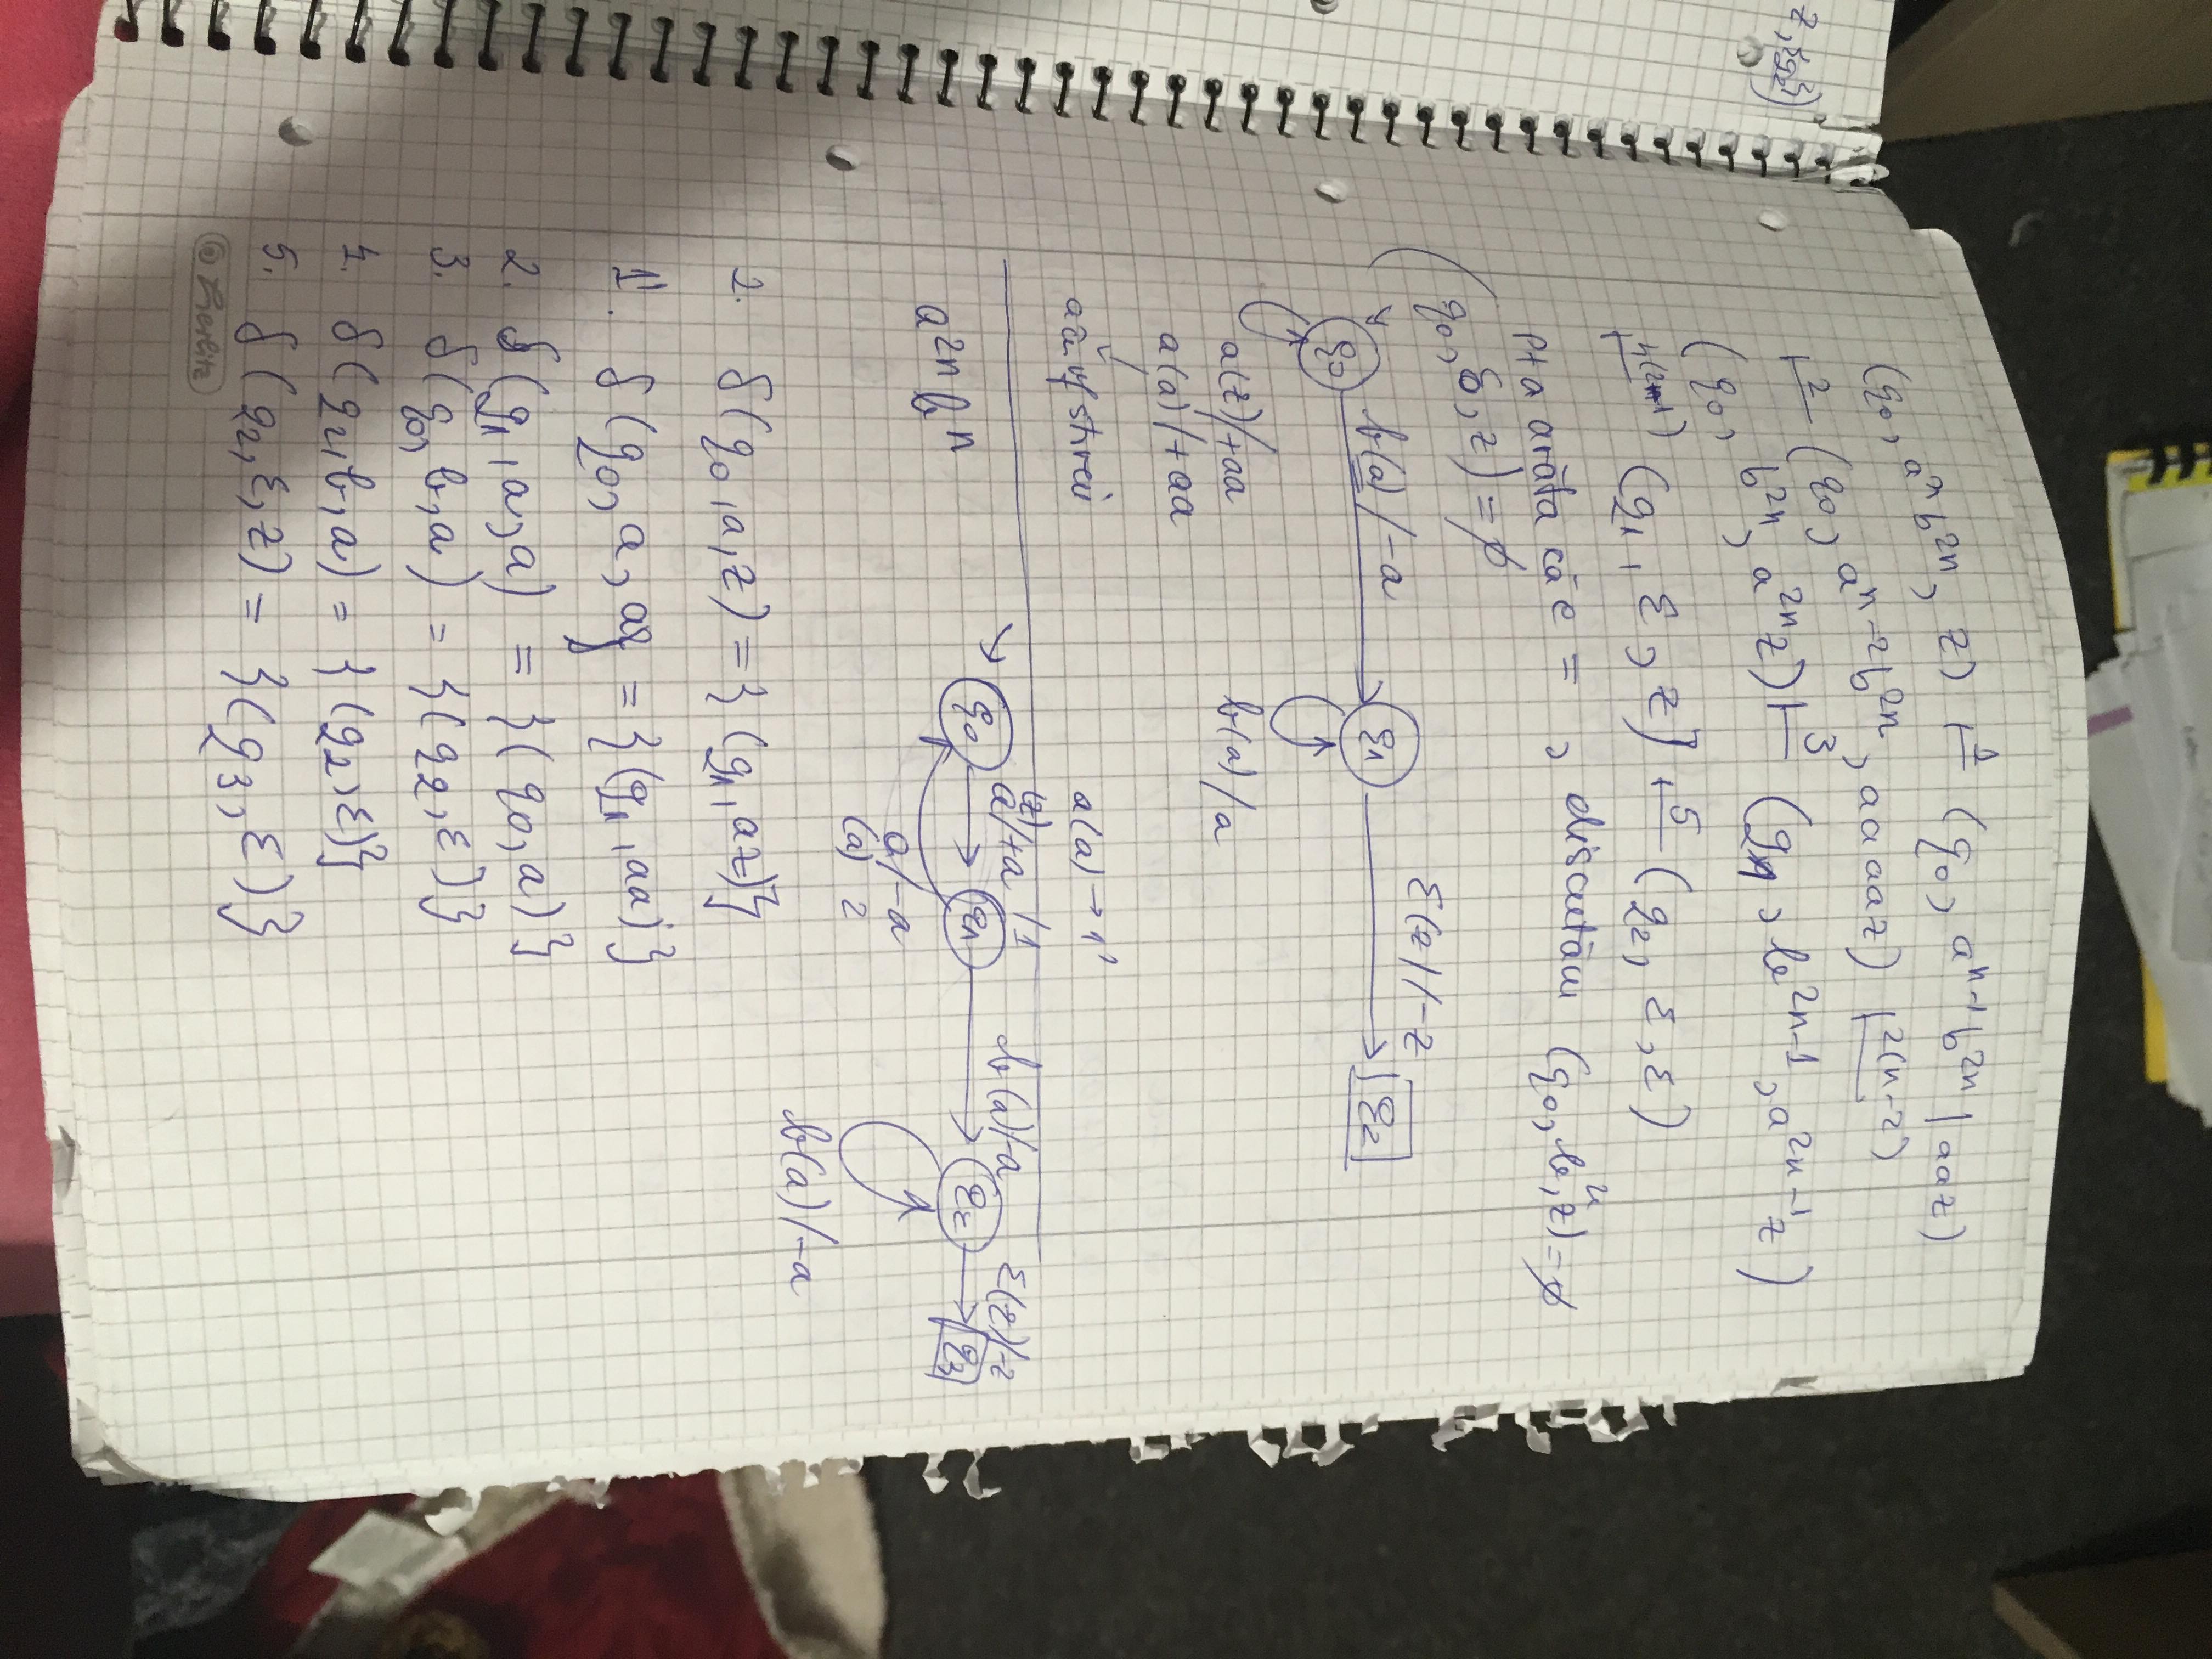 z, {q₂})
(q₀, aⁿb²ⁿ, z) ⊢¹ (q₀, aⁿ⁻¹b²ⁿ | aaz)
⊢² (q₀, aⁿ⁻²b²ⁿ, aaaaz) ⊢²⁽ⁿ⁻²⁾
(q₀, b²ⁿ, a²ⁿz) ⊢³ (q₁, b²ⁿ⁻¹, a²ⁿ⁻¹z)
⊢⁴⁽²ⁿ⁻¹⁾ (q₁, ε, z) ⊢⁵ (q₂, ε, ε)
pt a arăta că e = , discutăm (q₀, bⁿ, z) = ∅
(q₀, ε, z) = ∅
q₀ b(a)/-a q₁ ε(z)/-z q₂
a(z)/+aa b(a)/a
a(a)/+aa
a în vf stivei
a(a) → 1'
(z)
q₀ a/+a /1 q₁ b(a)/-a q₂ ε(z)/-z q₃
a²ⁿbⁿ
a/-a
(a) 2
b(a)/-a
2. δ(q₀, a, z) = {(q₁, az)}
1'. δ(q₀, a, a) = {(q₁, aa)}
2. δ(q₁, a, a) = {(q₀, a)}
3. δ(q₀, b, a) = {(q₂, ε)}
4. δ(q₂, b, a) = {(q₂, ε)}
5. δ(q₂, ε, z) = {(q₃, ε)}
Herlitz